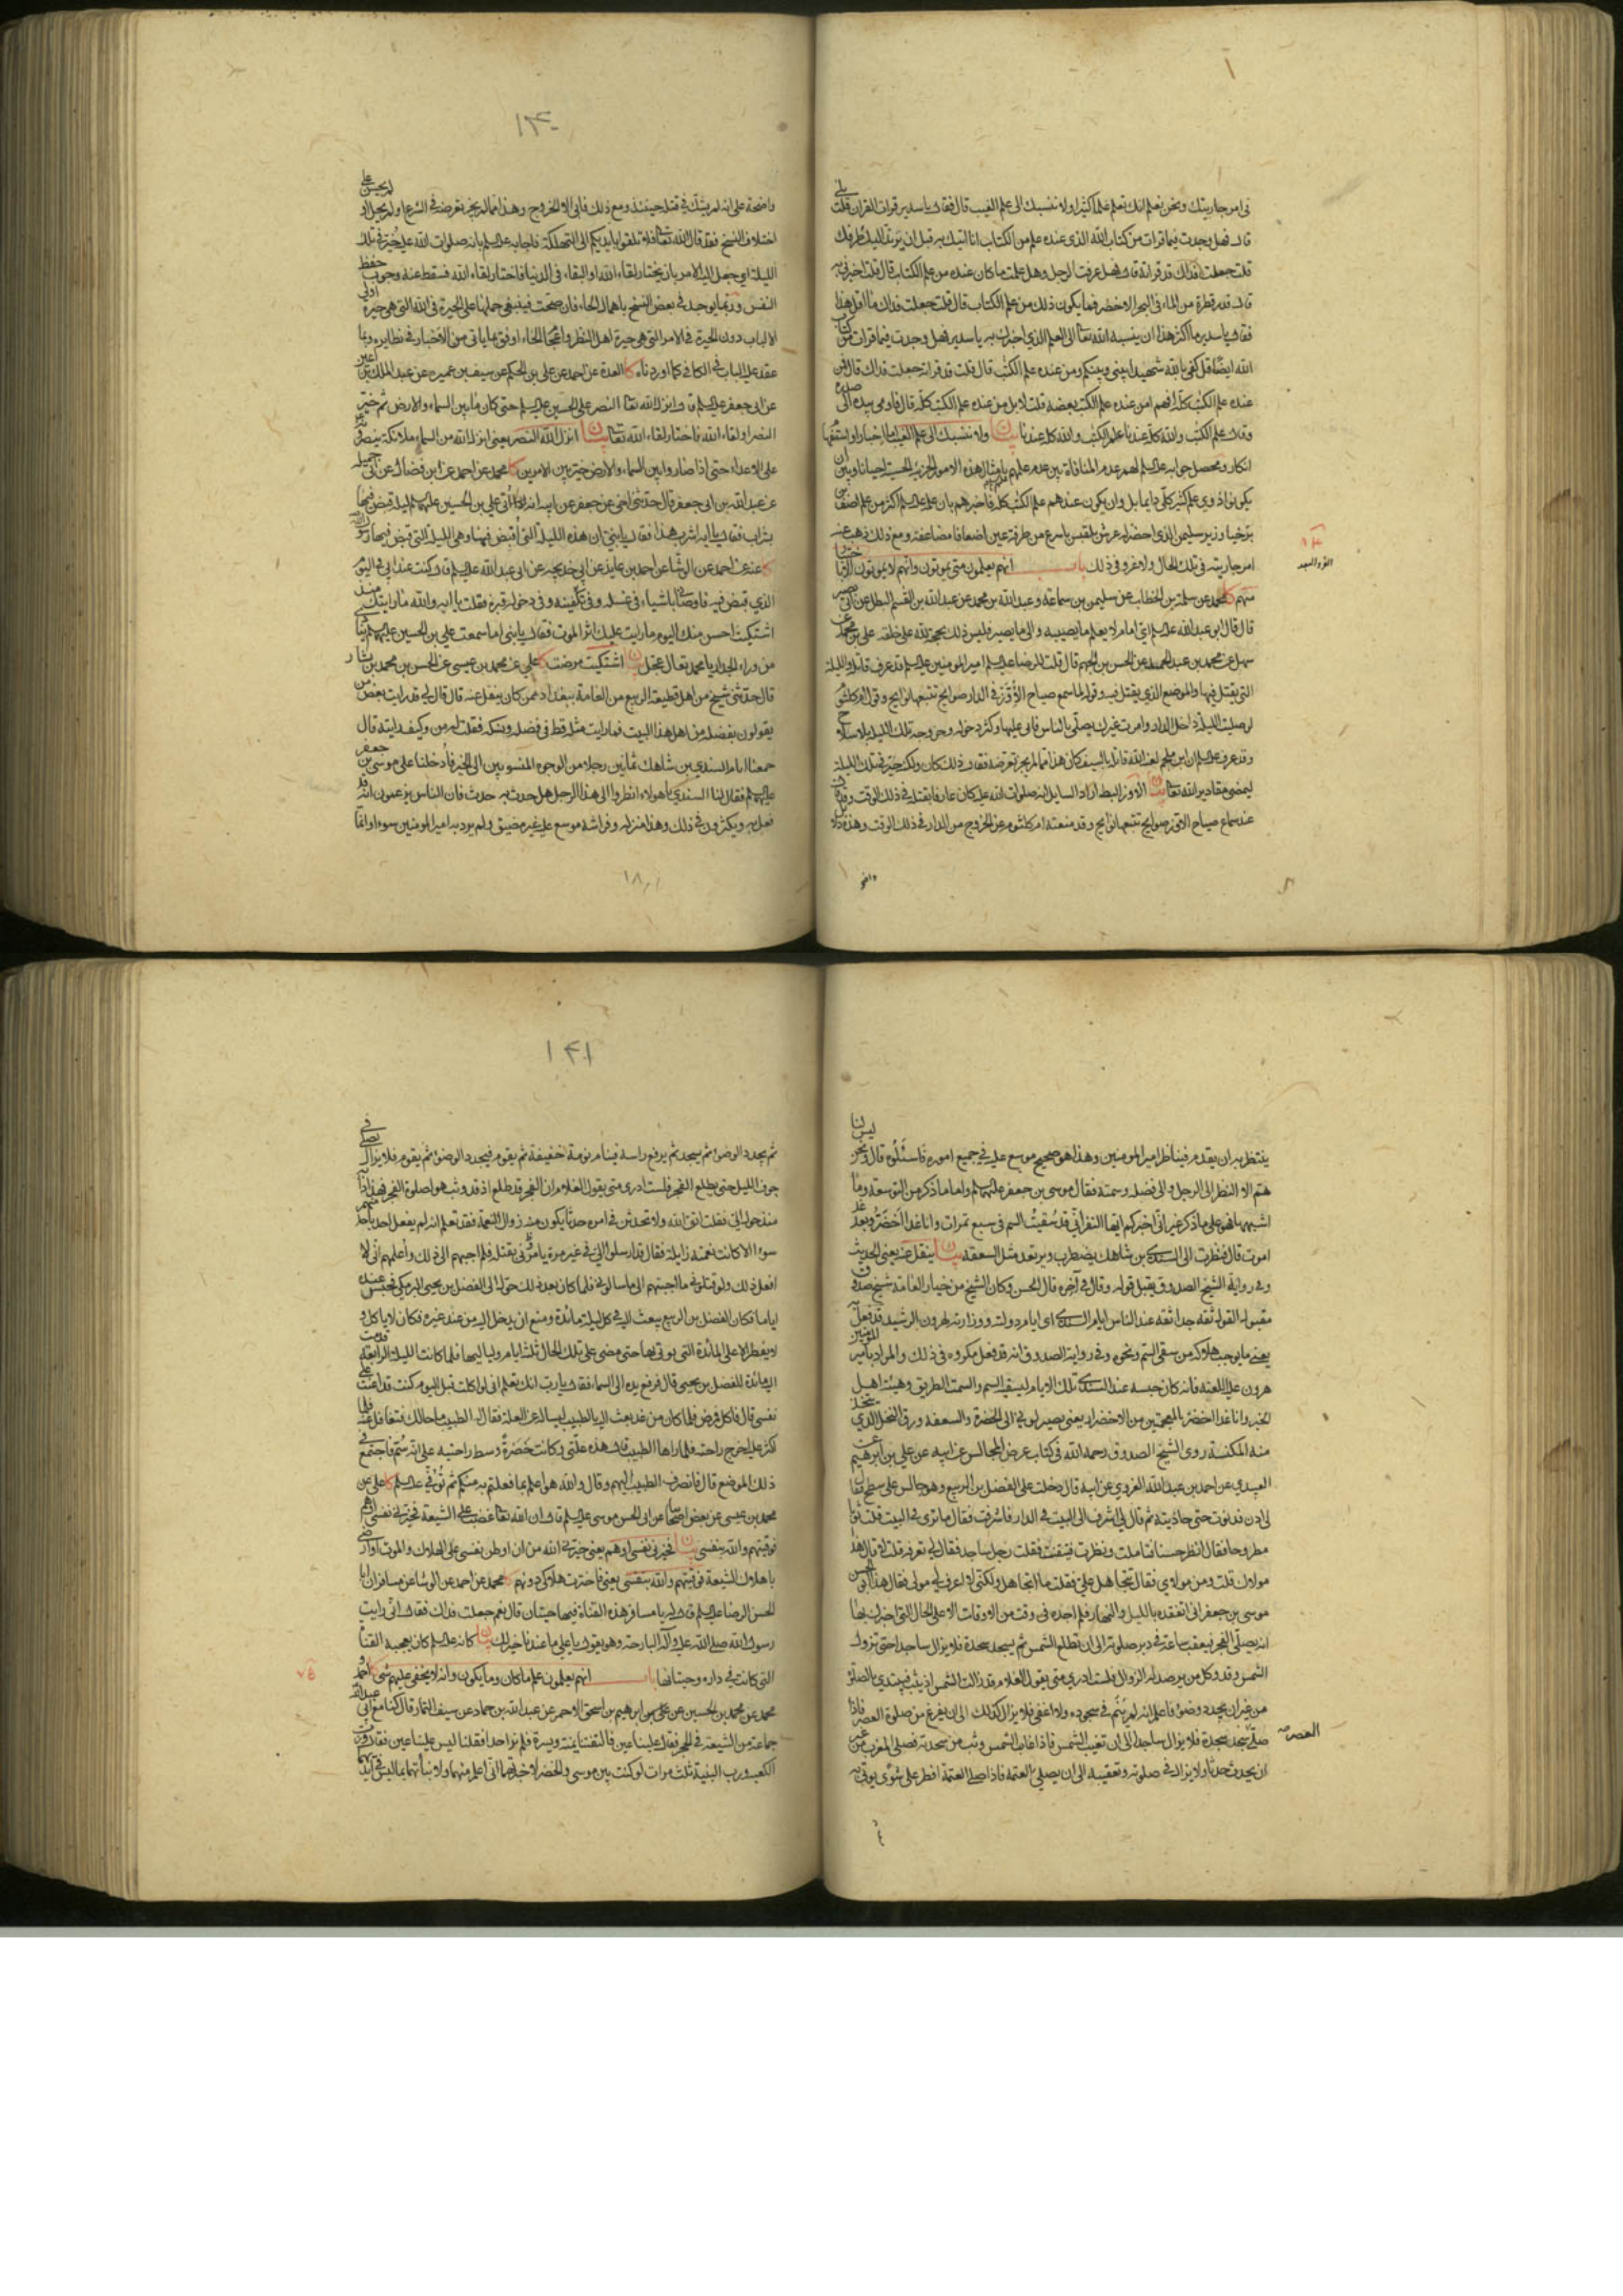 في امر جاريتك ونحن نعلم انك تعلم علما كثيرا ولا ننسبك الى علم الغيب قال فقال يا سدير قرات القران قلت بلى
قال فهل وجدت فيما قرات من كتاب الله الذي عنده علم من الكتاب انا اتيك به قبل ان يرتد اليك طرفك
قلت جعلت فداك قد قراته قال فهل عرفت الرجل وهل علمت ما كان عنده من علم الكتاب قال قلت اخبرني به
قال قدر قطرة من الماء في البحر الاخضر فما يكون ذلك من علم الكتاب قال قلت جعلت فداك ما اقل هذا
فقال يا سدير ما اكثر هذا ان ينسبه الله تعالى الى العلم الذي اخبرك به يا سدير فهل وجدت فيما قرات من كتاب
الله ايضا قل كفى بالله شهيدا بيني وبينكم ومن عنده علم الكتب قال قلت قد قراته جعلت فداك قال افمن
عنده علم الكتب كله افهم امن عنده علم الكتب بعضه قلت لا بل من عنده علم الكتب كله قال فاومى بيده الى صدره
وقال علم الكتب والله كله عندنا علم الكتب والله كله عندنا بيان ولا ننسبك الى علم الغيب اما اخبار او استفهام
انكار ومحصل جوابه عليه السلم لهم عدم المنافاة بين عدم علمهم بامثال هذه الامور الجزئية الخسيسة احيانا وبين ان
يكونوا ذوي علم كثير كلي دايما بل وان يكون عندهم علم الكتب كله فاخبرهم بان علمه عليه السلم اكثر من علم اصف بن
برخيا وزير سليمن الذي احضر له عرش بلقيس باسرع من طرفة عين اضعافا مضاعفة ومع ذلك ذهب عنه
امر جاريته في تلك الحال ولا غرو في ذلك باب انهم يعلمون متى يموتون وانهم لا يموتون الا باختيار
منهم كا محمد عن سلمة بن الخطاب عن سليمن بن سماعة وعبد الله بن محمد عن عبد الله بن القسم البطل عن ابي بصير
قال قال ابو عبد الله عليه السلم اي امام لا يعلم ما يصيبه والى ما يصير فليس ذلك بحجة لله على خلقه علي بن محمد عن
سهل عن محمد بن عبد الحميد عن الحسن بن الجهم قال قلت للرضا عليه السلم امير المومنين عليه السلم قد عرف قاتله والليلة
التي يقتل فيها والموضع الذي يقتل فيه وقوله لما سمع صياح الاوز في الدار صوايح تتبعها نوايح وقول ام كلثوم
لو صليت الليلة داخل الدار وامرت غيرك يصلي بالناس فابى عليها وكثر دخوله وخروجه تلك الليلة بلا سلاح
وقد عرف عليه السلم ان ابن ملجم لعنه الله قاتله بالسيف كان هذا مما لم يجز تعرضه فقال ذلك كان ولكنه خير في تلك الليلة
ليمضي مقادير الله تعالى بيان الاوز البط اراد السايل انه صلوات الله عليه كان عارفا بقتله في ذلك الوقت وقد قال
عند سماع صياح الاوز صوايح تتبعها نوايح وقد منعته ام كلثوم عن الخروج من الدار في ذلك الوقت وهذه دلالة
واضحة
١٤٠
واضحة على انه لم يشك في قتله حينئذ ومع ذلك فابى الا الخروج وهذا مما لم يجز تعرضه في الشرع او لم يحل او لم يحسن على
اختلاف النسخ فقد قال الله تعالى ولا تلقوا بايديكم الى التهلكة فاجابه عليه السلم بانه صلوات الله عليه خير في تلك
الليلة اي جعل اليه الامر بان يختار لقاء الله او البقاء في الدنيا فاختار لقاء الله فسقط عنه وجوب حفظ
النفس وربما يوجد في بعض النسخ باهمال الحاء فان صحت فينبغي حملها على الحيرة في الله التي هي حيرة اولي
الالباب دون الحيرة في الامر التي هي حيرة اهل النظر واعجام الخاء اوفق بما ياتي من الاخبار في نظايره وبما
عقد عليه الباب في الكافي كما اوردناه كا العدة عن احمد عن علي بن الحكم عن سيف بن عميرة عن عبد الملك بن اعين
عن ابي جعفر عليه السلم قال انزل الله تعالى النصر على الحسين عليه السلم حتى كان ما بين السماء والارض ثم خير
النصر او لقاء الله فاختار لقاء الله تعالى بيان انزل الله النصر يعني انزل الله من السماء ملائكة ينصرونه
على الاعداء حتى اذا صاروا بين السماء والارض خير بين الامرين كا محمد عن احمد عن ابن فضال عن ابي جميلة
عن عبد الله بن ابي جعفر قال حدثني اخي عن جعفر عن ابيه انه اتى علي بن الحسين عليهم السلم ليلة قبض فيها
بشراب فقال يا ابه اشرب هذا فقال يا بني ان هذه الليلة التي اقبض فيها وهي الليلة التي قبض فيها رسول الله
كا عنه عن احمد عن الوشا عن احمد بن عايذ عن ابي خديجة عن ابي عبد الله عليه السلم قال كنت عند ابي في اليوم
الذي قبض فيه فاوصاني باشياء في غسله وفي تكفينه وفي دخوله قبره فقلت يا ابه والله ما رايتك منذ
اشتكيت احسن منك اليوم ما رايت عليك اثر الموت فقال يا بني اما سمعت علي بن الحسين عليهما السلم ينادي
من وراء الجدار يا محمد تعال عجل بيان اشتكيت مرضت كا علي عن محمد بن عيسى عن الحسن بن محمد بن بشار
قال حدثني شيخ من اهل قطيعة الربيع من العامة ببغداد ممن كان ينقل عنه قال قال لي قد رايت بعض من
يقولون بفضله من اهل هذا البيت فما رايت مثله قط في فضله ونسكه فقلت له من وكيف رايته قال
جمعنا ايام السندي بن شاهك ثمانين رجلا من الوجوه المنسوبين الى الخير فادخلنا على موسى بن جعفر
عليهما السلم فقال لنا السندي يا هولاء انظروا الى هذا الرجل هل حدث به حدث فان الناس يزعمون انه قد
فعل به ويكثرون في ذلك وهذا منزله وفراشه موسع عليه غير مضيق ولم يرد به امير المومنين سوءا وانما
ينتظر به ان يقدم فيناظر امير المومنين وهذا هو صحيح موسع عليه في جميع اموره فاسئلوه قال ونحن ليس لنا
هم الا النظر الى الرجل والى فضله وسمته فقال موسى بن جعفر عليهما السلم اما ما ذكر من التوسعة وما
اشبهها فهو على ما ذكر غير اني اخبركم ايها النفر اني قد سقيت السم في سبع تمرات وانا غدا اخضر وبعد غد
اموت قال فنظرت الى السندي بن شاهك يضطرب ويرتعد مثل السعفة بيان ينقل عنه يعني الحديث
وفي رواية الشيخ الصدوق يقبل قوله وقال في آخره قال الحسن وكان الشيخ من خيار العامة شيخ صدوق
مقبول القول ثقة جدا ثقة عند الناس ايام السندي اي ايام دولته ووزارته لهرون الرشيد قد فعل به
يعني ما يوجب هلاكه من سقي السم ونحوه وفي رواية الصدوق انه قد فعل مكروه في ذلك والمراد بامير المومنين
هرون عليه اللعنة فانه كان حبسه عند السندي تلك الايام ليسقيه السم والسمت الطريق وهيئة اهل
الخير وانا غدا اخضر بالمعجمتين من الاخضرار يعني يصير لوني الى الخضرة والسعفة ورق النخل الذي يتخذ
منه المكنسة روى الشيخ الصدوق رحمه الله في كتاب عرض المجالس عن ابيه عن علي بن ابرهيم عن
العبيدي عن احمد بن عبد الله الغروي عن ابيه قال دخلت على الفضل بن الربيع وهو جالس على سطح فقال
لي ادن فدنوت حتى حاذيته ثم قال لي اشرف الى البيت في الدار فاشرفت فقال ما ترى في البيت قلت ثوبا
مطروحا فقال انظر حسنا فتاملت ونظرت فتيقنت فقلت رجل ساجد فقال لي تعرفه قلت لا قال هذا
مولاك قلت ومن مولاي فقال تتجاهل علي فقلت ما اتجاهل ولكني لا اعرف لي مولى فقال هذا ابو الحسن
موسى بن جعفر اني اتفقده بالليل والنهار فلم اجده في وقت من الاوقات الا على الحال التي اخبرك بها
انه يصلي الفجر فيعقب ساعة في دبر صلوته الى ان تطلع الشمس ثم يسجد سجدة فلا يزال ساجدا حتى تزول
الشمس وقد وكل من يرصد له الزوال فلست ادري متى يقول الغلام قد زالت الشمس اذ يثب فيبتدي بالصلوة
من غير ان يجدد وضوء فاعلم انه لم ينم في سجوده ولا اغفى فلا يزال كذلك الى ان يفرغ من صلوة العصر فاذا
صلى العصر سجد سجدة فلا يزال ساجدا الى ان تغيب الشمس فاذا غابت الشمس وثب من سجدته فصلى المغرب من غير
ان يحدث حدثا ولا يزال في صلوته وتعقيبه الى ان يصلي العتمة فاذا صلى العتمة افطر على شوي يوتى به
ثم
١٤١
ثم يجدد الوضوء ثم يسجد ثم يرفع راسه فينام نومة خفيفة ثم يقوم فيجدد الوضوء ثم يقوم فلا يزال يصلي في
جوف الليل حتى يطلع الفجر فلست ادري متى يقول الغلام ان الفجر قد طلع اذ قد وثب هو لصلوة الفجر فهذا دابه
منذ حول الي فقلت اتق الله ولا تحدثن في امره حدثا يكون منه زوال النعمة فقد تعلم انه لم يفعل احد باحد منهم
سوءا الا كانت نعمته زايلة فقال قد ارسلوا الي في غير مرة يامروني بقتله فلم اجبهم الى ذلك واعلمهم اني لا
افعل ذلك ولو قتلوني ما اجبتهم الى ما سالوني فلما كان بعد ذلك حول الى الفضل بن يحيى البرمكي فحبس عنده
اياما فكان الفضل بن الربيع يبعث اليه في كل ليلة مائدة ومنع ان يدخل اليه من عند غيره فكان لا ياكل و
لا يفطر الا على المائدة التي يوتى بها حتى مضى على تلك الحال ثلثة ايام ولياليها فلما كانت الليلة الرابعة قدمت
اليه مائدة للفضل بن يحيى قال فرفع يده الى السماء فقال يا رب انك تعلم اني لو اكلت قبل اليوم كنت قد اعنت على
نفسي قال فاكل فمرض فلما كان من غد بعث اليه بالطبيب ليساله عن العلة فقال له الطبيب ما حالك فتغافل عنه فلما
اكثر عليه اخرج راحته فلما راها الطبيب قال هذه علتي وكانت خضرة وسط راحتيه على انه سم فاجتمع في
ذلك الموضع قال فانصرف الطبيب اليهم وقال والله هو اعلم بما فعلتم به منكم ثم توفي عليه السلم كا علي عن
محمد بن عيسى عن بعض اصحابنا عن ابي الحسن موسى عليه السلم قال ان الله تعالى غضب على الشيعة فخيرني نفسي او هم
فوقيتهم والله بنفسي بيان فخيرني نفسي او هم يعني خيرني الله من ان اوطن نفسي على الهلاك والموت او ارضى
باهلاك الشيعة فوقيتهم والله بنفسي يعني فاخترت هلاكي دونهم كا محمد عن احمد عن الوشا عن مسافر ان ابا
الحسن الرضا عليه السلم قال له يا مسافر هذه القناة فيها حيتان قال نعم جعلت فداك فقال اني رايت
رسول الله صلى الله عليه وآله البارحة وهو يقول يا علي ما عندنا خير لك بيان كانه عليه السلم كان يعجبه القناة
التي كانت في داره وحيتانها باب انهم يعلمون علم ما كان وما يكون وانه لا يخفى عليهم شيء كا احمد و
محمد عن محمد بن الحسين عن ابرهيم بن اسحق الاحمر عن عبد الله بن حماد عن سيف التمار قال كنا مع ابي عبد الله
جماعة من الشيعة في الحجر فقال علينا عين فالتفتنا يمنة ويسرة فلم نر احدا فقلنا ليس علينا عين فقال ورب
الكعبة ورب البنية ثلث مرات لو كنت بين موسى والخضر لاخبرتهما اني اعلم منهما ولانباتهما بما ليس في ايديهما